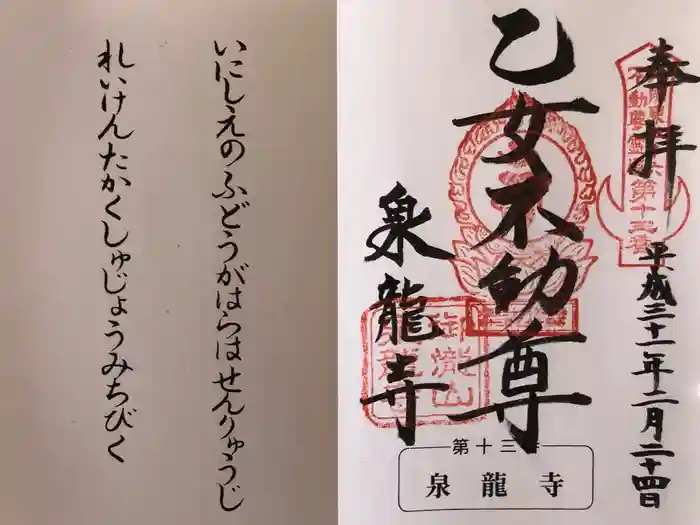 奉拝
平成三十一年二月二十四日
乙女不動尊
泉龍寺
第十三番
泉龍寺
いにしえのふどうがはらはせんりゅうじ
れいけんたかくしゅじょうみちびく